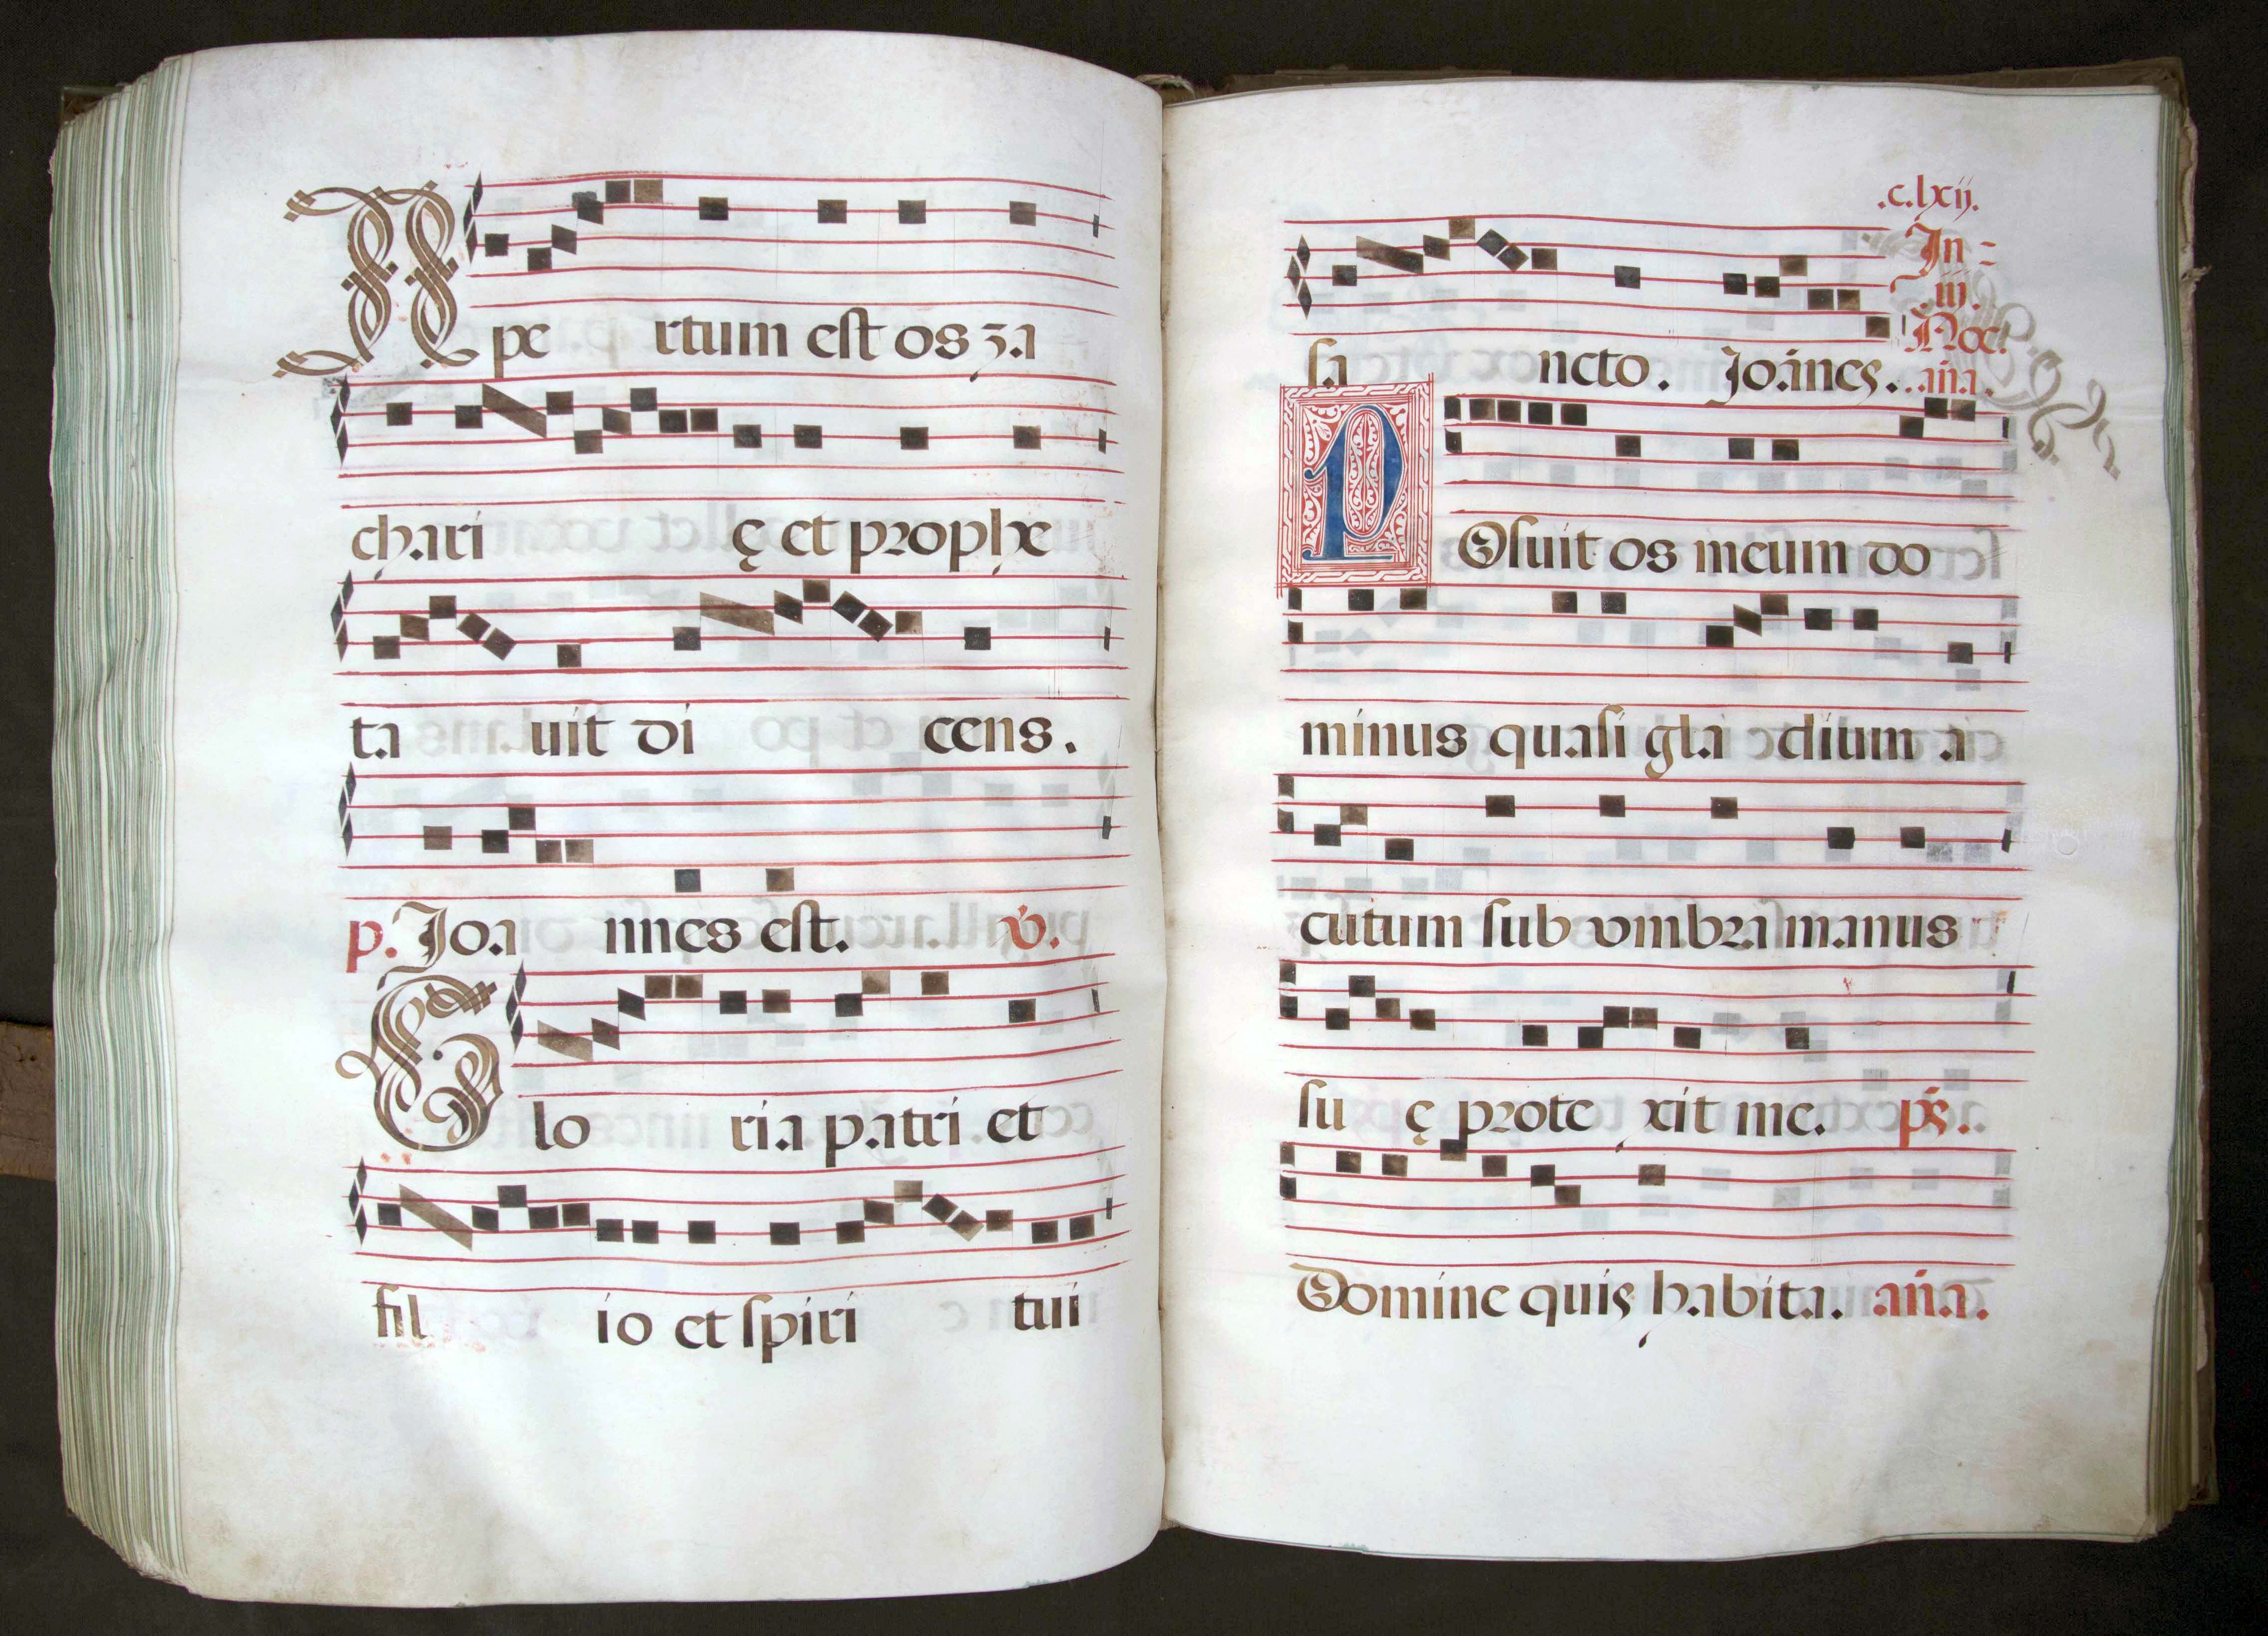 Ape rtum est os za
chari ę et prophe
ta uit di cens.
p. Joa nnes est. v.
Glo ria patri et
fil io et spiri tui
.c.lxij.
sa ncto. Joānes.
In=
.iij.
Noc.
.aña.
POsuit os meum do
minus quasi gla dium a
cutum sub vmbra manus
su ę prote xit me. ps.
Domine quis habita. aña.